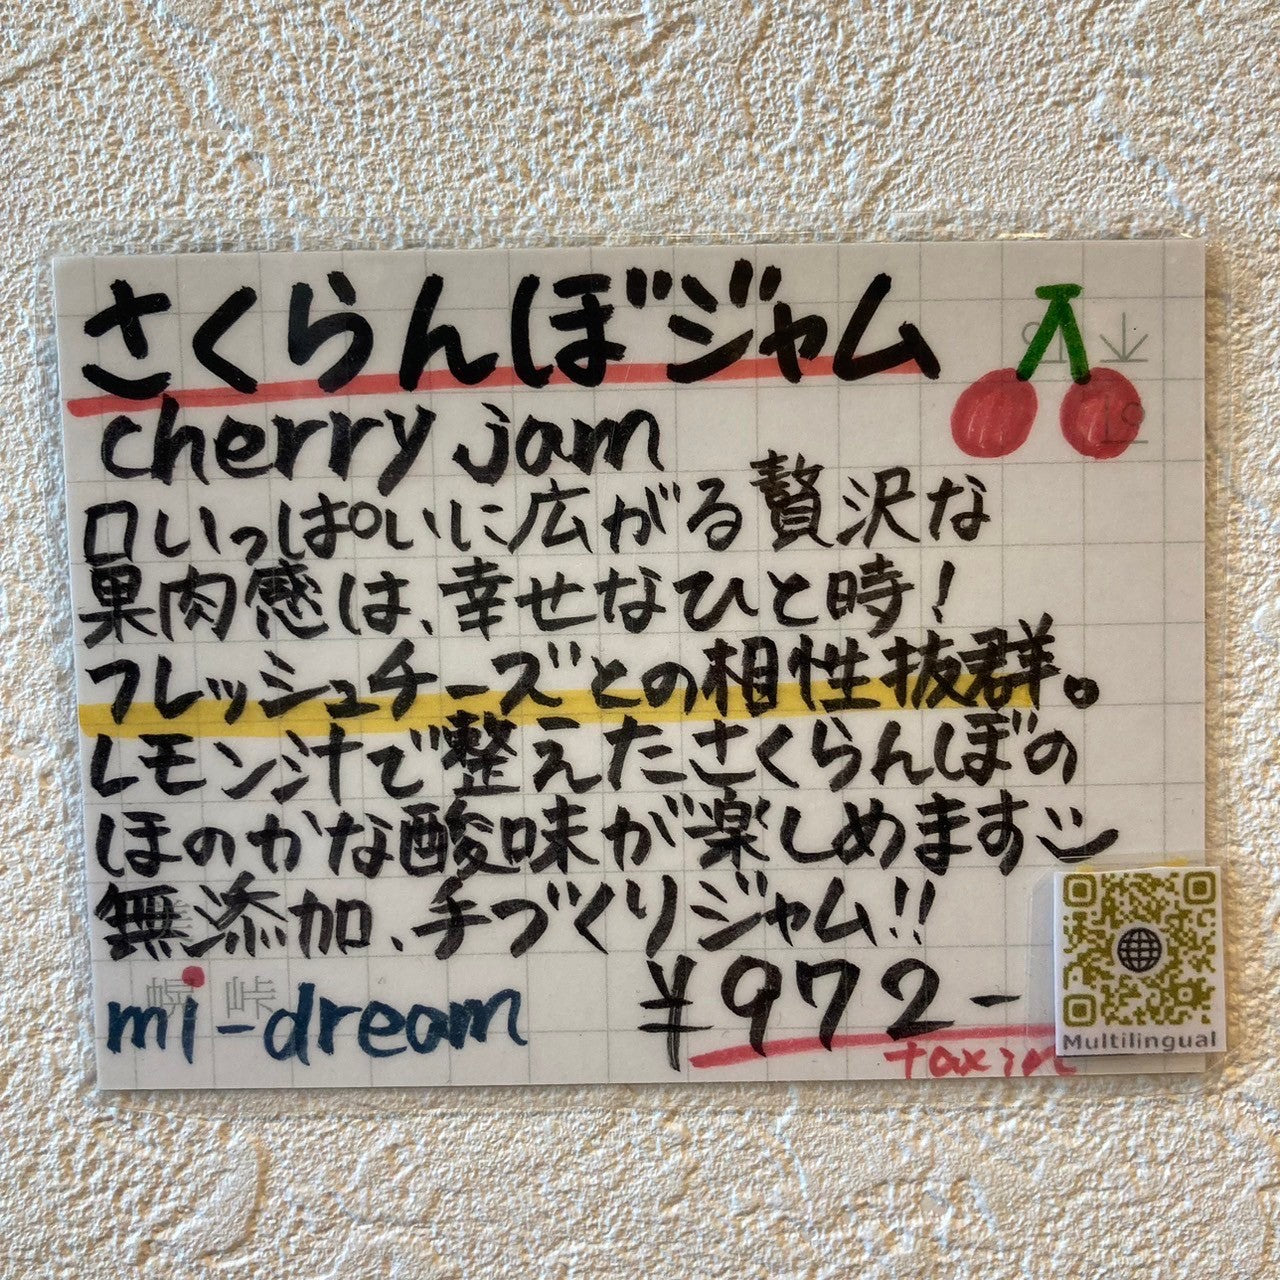 さくらんぼジャム
cherry jam
口いっぱいに広がる贅沢な
果肉感は、幸せなひと時！
フレッシュチーズとの相性抜群。
レモン汁で整えたさくらんぼの
ほのかな酸味が楽しめます
無添加、手づくりジャム!!
mi-dream
¥972-
tax in
Multilingual